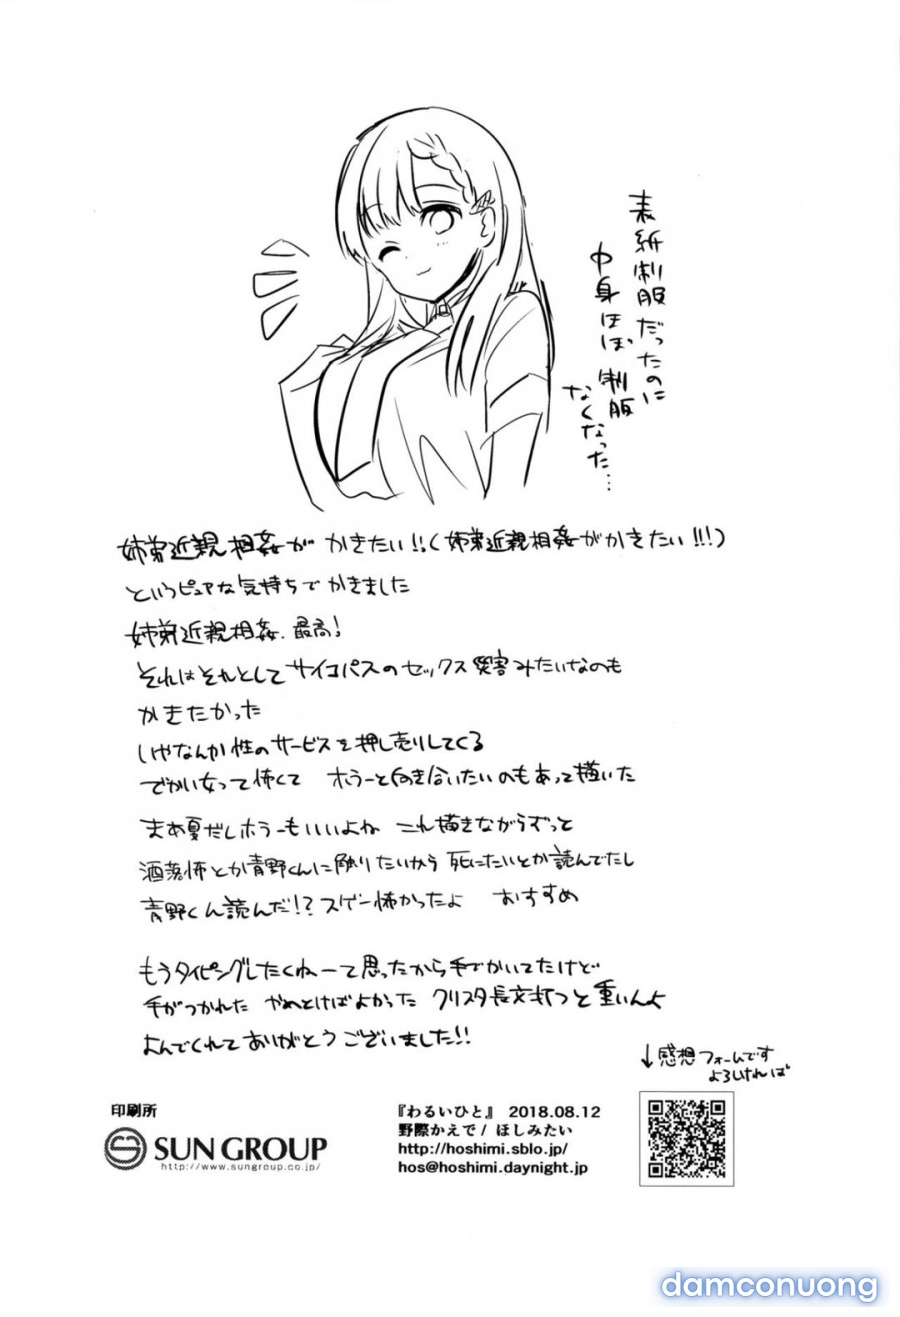 表紙制服だったのに
中身ほぼ制服
なくなった…
姉弟近親相姦が かきたい!!(姉弟近親相姦がかきたい!!!)
というピュアな気持ちでかきました
姉弟近親相姦、最高!
それはそれとしてサイコパスのセックス災害みたいなのも
かきたかった
いやなんか性のサービスを押し売りしてくる
でかい女って怖くて ホラーと向き合いたいのもあって描いた
まあ夏だしホラーもいいよね これ描きながらずっと
洒落怖とか青野くんに触りたいから死にたいとか読んでたし
青野くん読んだ!? スゲー怖かったよ おすすめ
もうタイピングしたくねーって思ったから手でかいてたけど
手がつかれた やめとけばよかった クリスタ長文打つと重いんよ
よんでくれてありがとうございました!!
↓感想フォームです
よろしければ
印刷所
SUN GROUP
http://www.sungroup.co.jp/
『わるいひと』 2018.08.12
野際かえで/ ほしみたい
http://hoshimi.sblo.jp/
hos@hoshimi.daynight.jp
damconuong